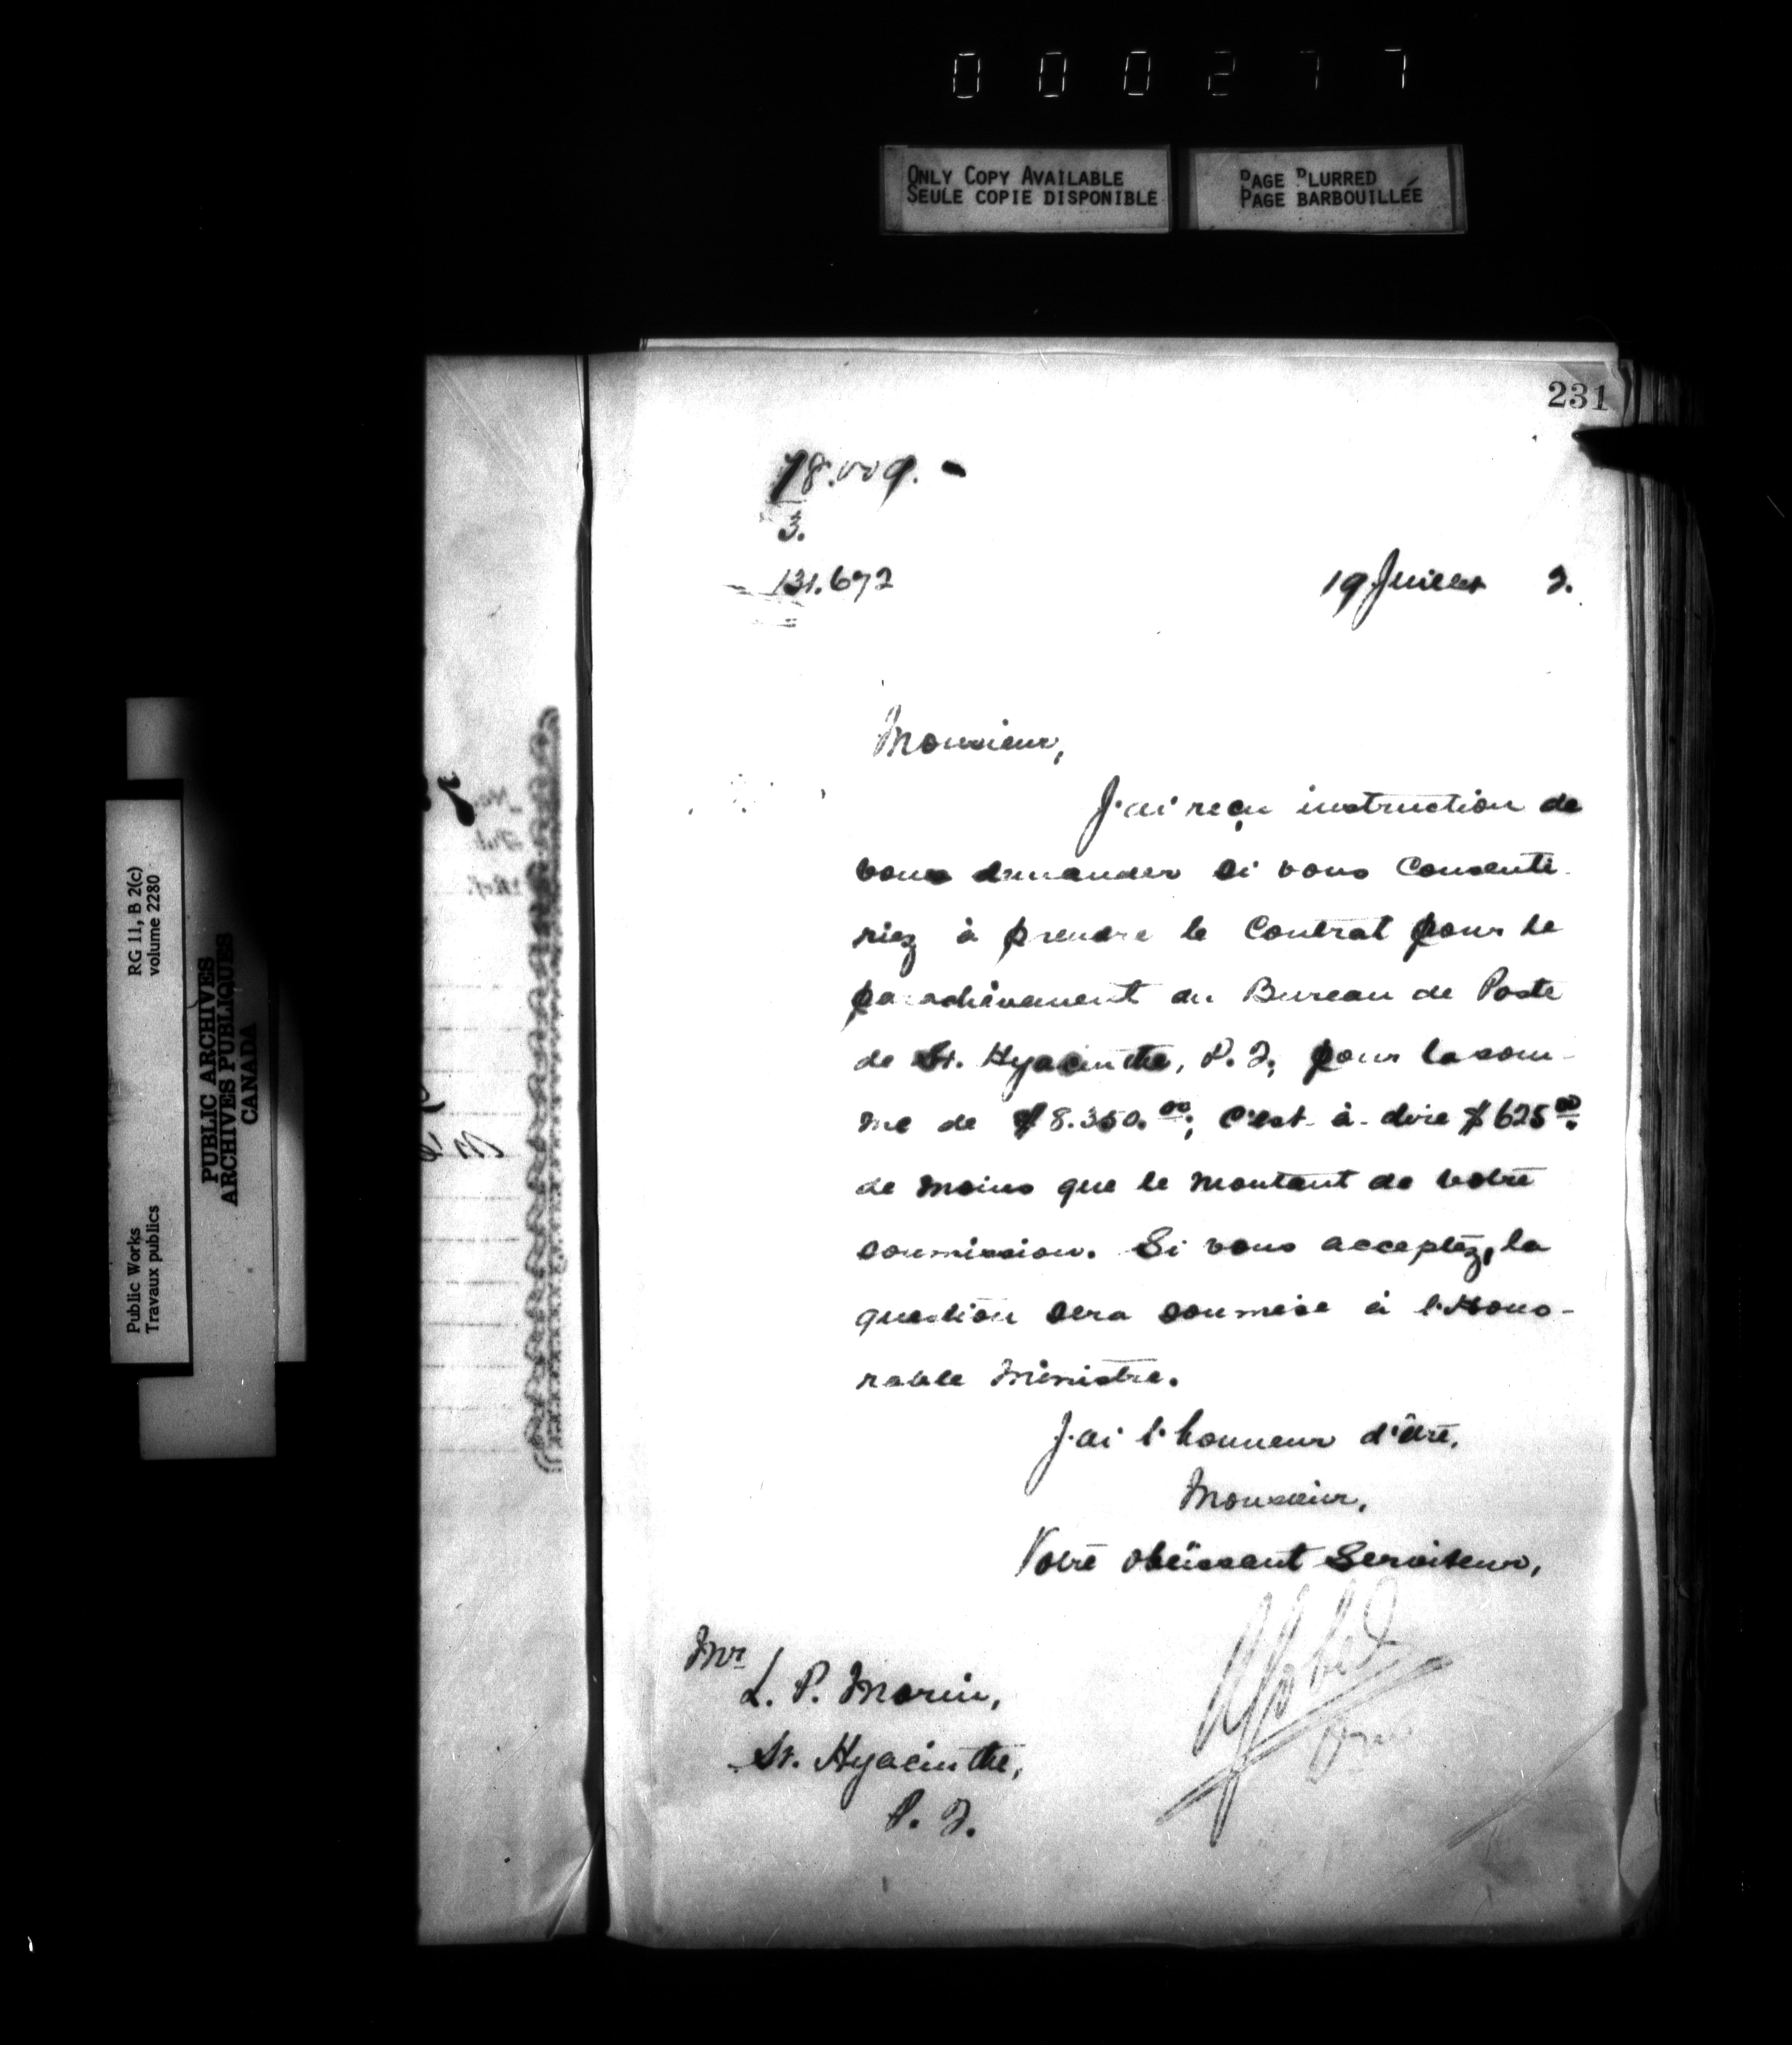 000277
ONLY COPY AVAILABLE
SEULE COPIE DISPONIBLE
PAGE BLURRED
PAGE BARBOUILLÉE
231
3.
131.672
19 Juillet 2.
Monsieur,
J'ai reçu instruction de
vous demander si vous consenti-
riez à prendre le Contrat pour le
parachèvement du Bureau de Poste
de St. Hyacinthe, P. Q., pour la som-
me de $8.350.00; c'est-à-dire $625.00
de moins que le montant de votre
soumission. Si vous acceptez, la
question sera soumise à l'Hono-
rable Ministre.
J'ai l'honneur d'être,
Monsieur,
Votre obéissant Serviteur,
Mr
L. P. Morin,
St. Hyacinthe,
P. Q.
RG 11, B 2(c)
volume 2280
Public Works
Travaux publics
PUBLIC ARCHIVES
ARCHIVES PUBLIQUES
CANADA